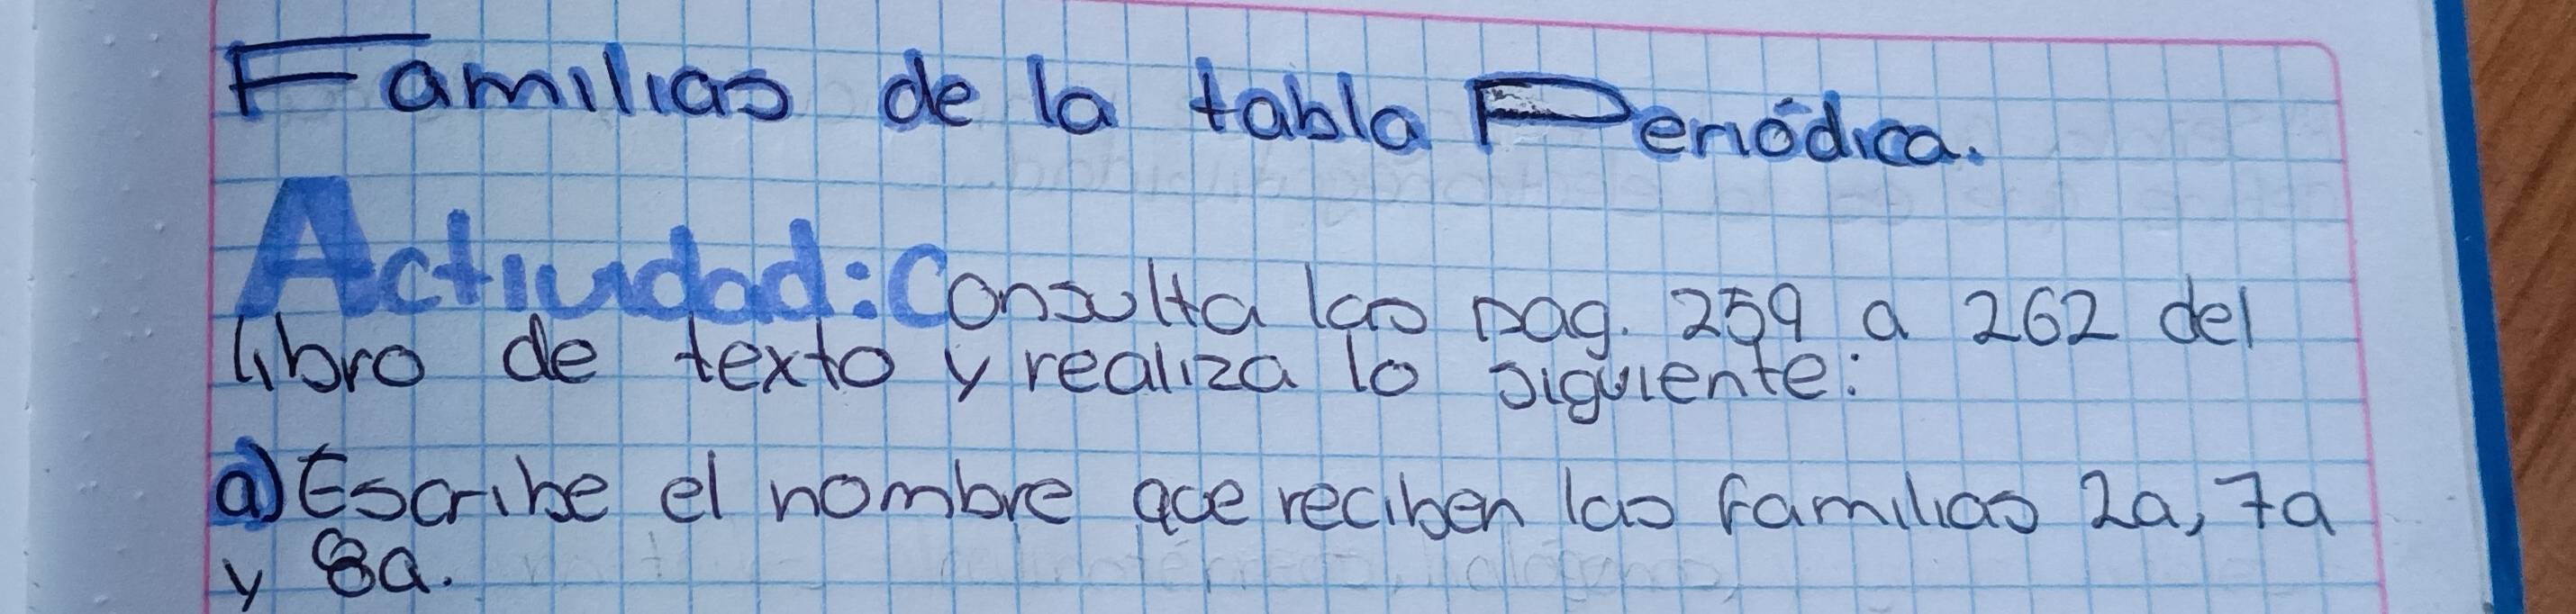 Familias de la tabla Periódica.
Actividad: Consulta las pag. 259 a 262 del
libro de texto y realiza lo siguiente:
a) Escribe el nombre que reciben las familias 2a, 7a
y 8a.